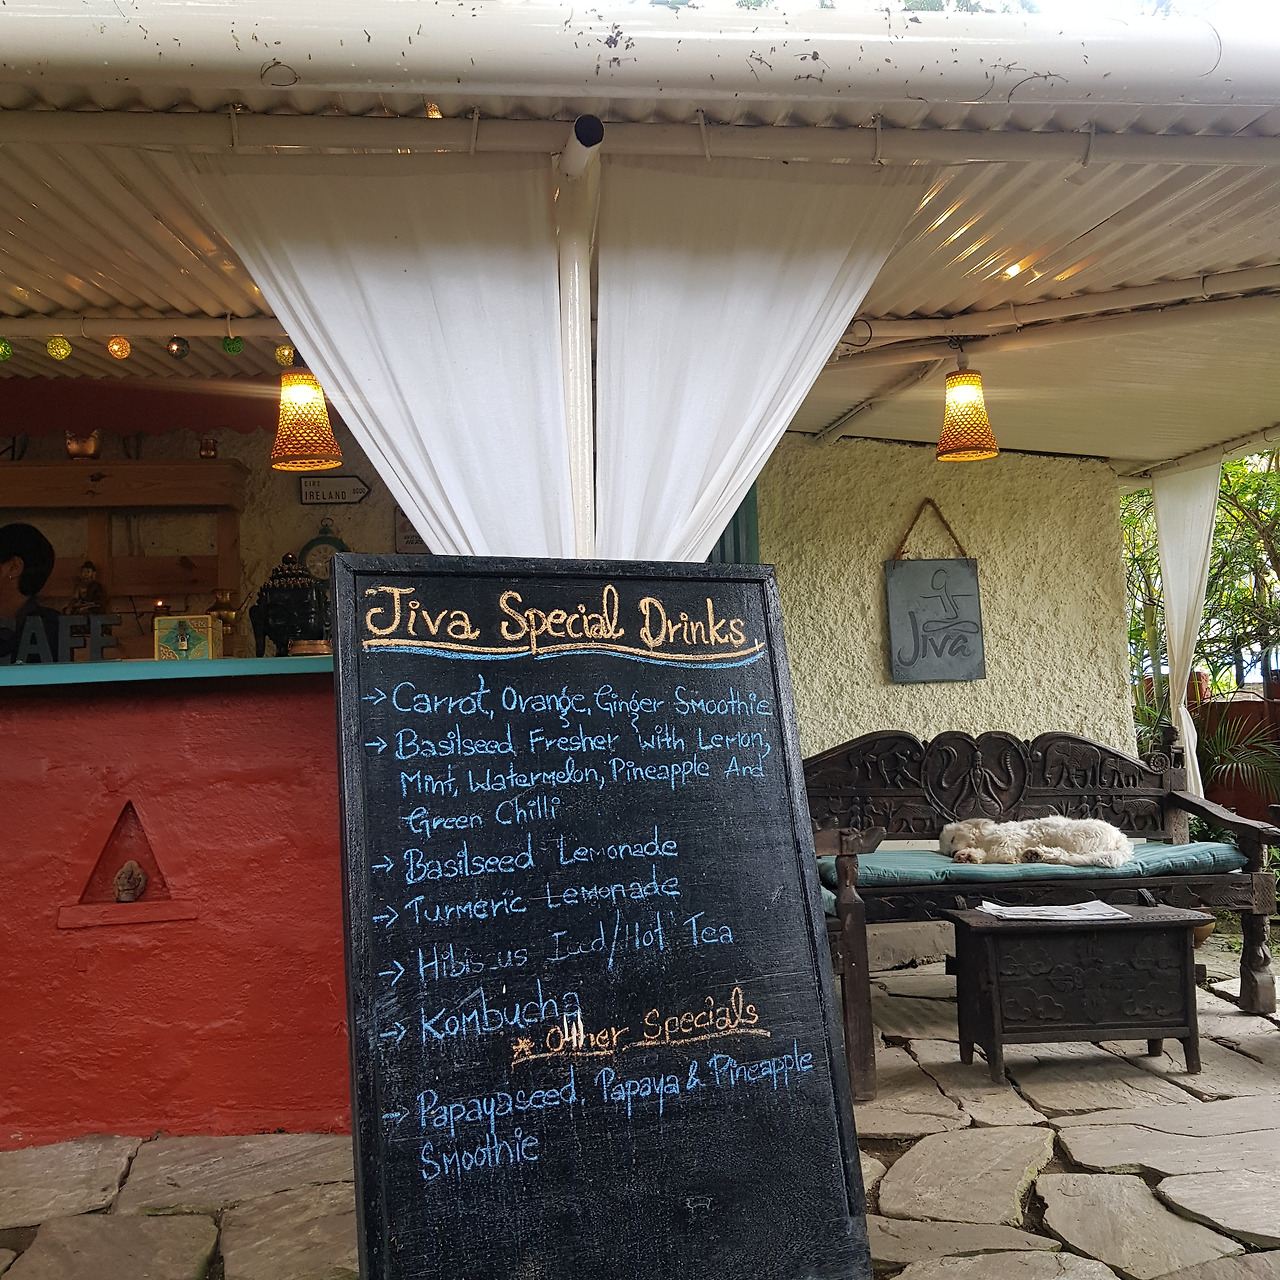 EIRE
IRELAND
CAFE
Jiva
Jiva Special Drinks
→ Carrot, Orange, Ginger Smoothie
→ Basilseed Fresher with Lemon,
Mint, Watermelon, Pineapple And
Green Chilli
→ Basilseed Lemonade
→ Turmeric Lemonade
→ Hibiscus Iced/Hot Tea
→ Kombucha
* Other Specials
→ Papayaseed, Papaya & Pineapple
Smoothie